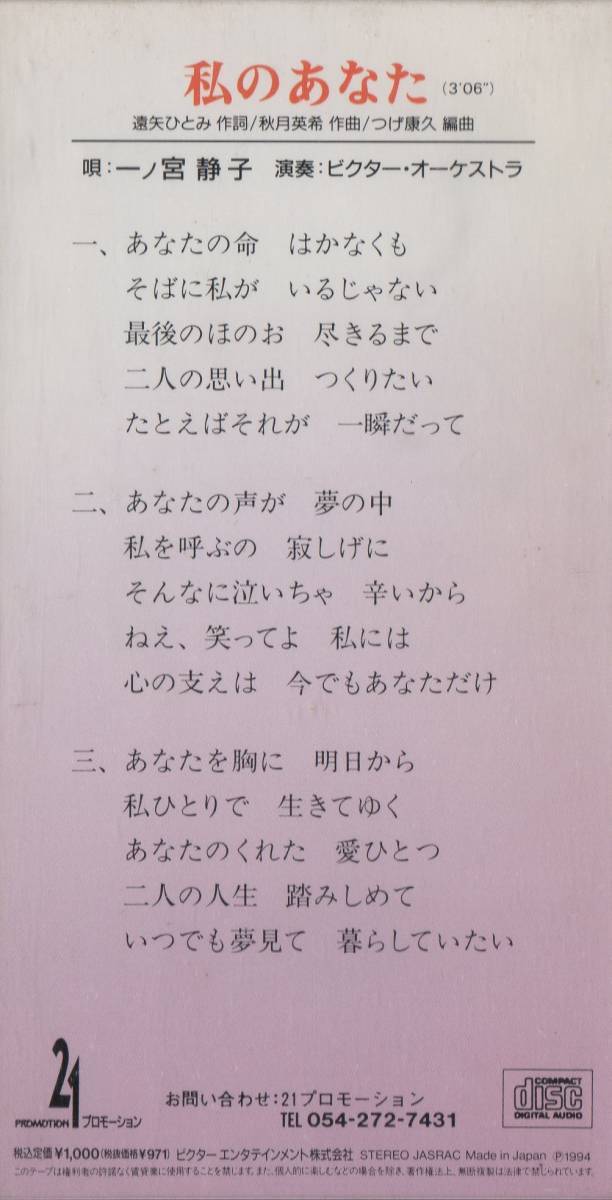 私のあなた (3'06")
遠矢ひとみ 作詞/秋月英希 作曲/つげ康久 編曲
唄:一ノ宮静子 演奏:ビクター・オーケストラ
一、あなたの命 はかなくも
そばに私が いるじゃない
最後のほのお 尽きるまで
二人の思い出 つくりたい
たとえばそれが 一瞬だって
二、あなたの声が 夢の中
私を呼ぶの 寂しげに
そんなに泣いちゃ 辛いから
ねえ、笑ってよ 私には
心の支えは 今でもあなただけ
三、あなたを胸に 明日から
私ひとりで 生きてゆく
あなたのくれた 愛ひとつ
二人の人生 踏みしめて
いつでも夢見て 暮らしていたい
21
PROMOTION プロモーション
お問い合わせ:21プロモーション
TEL 054-272-7431
COMPACT
disc
DIGITAL AUDIO
税込定価¥1,000(税抜価格¥971) ビクター エンタテインメント株式会社 STEREO JASRAC Made in Japan Ⓟ1994
このテープは権利者の許諾なく賃貸業に使用することを禁じます。また、個人的に楽しむなどの場合を除き、著作権法上、無断複製は法律で禁じられています。